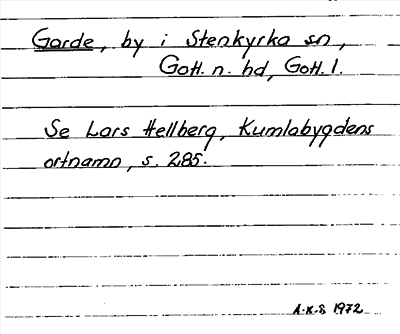 Garde, by i Stenkyrka sn,
Gotl. n. hd, Gotl. l.
Se Lars Hellberg, Kumlabygdens
ortnamn, s. 285.
A.K.S 1972